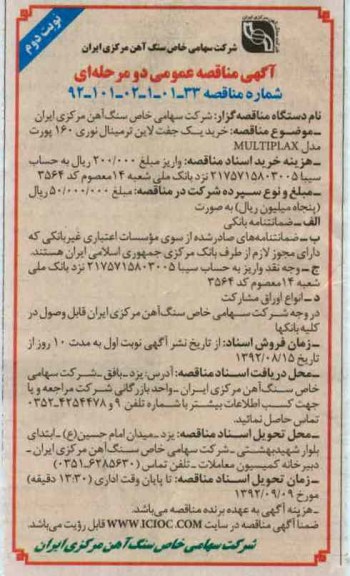 نوبت دوم
شرکت سهامی خاص سنگ آهن مرکزی ایران
آگهی مناقصه عمومی دو مرحله‌ای
شماره مناقصه ۳۳-۰۱-۱-۰۲-۱۰۱-۹۲
نام دستگاه مناقصه گزار: شرکت سهامی خاص سنگ آهن مرکزی ایران
ـ موضوع مناقصه: خرید یک جفت لاین ترمینال نوری ۱۶۰ پورت
مدل MULTIPLAX
ـ هزینه خرید اسناد مناقصه: واریز مبلغ ۲۰۰/۰۰۰ ریال به حساب
سیبا ۲۱۷۵۷۱۵۸۰۳۰۰۵ نزد بانک ملی شعبه ۱۴ معصوم کد ۳۵۶۴
ـ مبلغ و نوع سپرده شرکت در مناقصه: مبلغ ۵۰/۰۰۰/۰۰۰ ریال
(پنجاه میلیون ریال) به صورت
الف ـ ضمانتنامه بانکی
ب ـ ضمانتنامه‌های صادر شده از سوی مؤسسات اعتباری غیربانکی که
دارای مجوز لازم از طرف بانک مرکزی جمهوری اسلامی ایران هستند.
ج ـ وجه نقد واریز به حساب سیبا ۲۱۷۵۷۱۵۸۰۳۰۰۵ نزد بانک ملی
شعبه ۱۴ معصوم کد ۳۵۶۴
د ـ انواع اوراق مشارکت
در وجه شرکت سهامی خاص سنگ‌آهن مرکزی ایران قابل وصول در
کلیه بانکها
ـ زمان فروش اسناد: از تاریخ نشر آگهی نوبت اول به مدت ۱۰ روز از
تاریخ ۱۳۹۲/۰۸/۱۵
ـ محل دریافت اسناد مناقصه: آدرس: یزد ـ بافق ـ شرکت سهامی
خاص سنگ‌آهن مرکزی ایران ـ واحد بازرگانی شرکت مراجعه و یا
جهت کسب اطلاعات بیشتر با شماره تلفن ۹ و ۴۲۵۴۴۷۸-۰۳۵۲
تماس حاصل نمائید.
ـ محل تحویل اسناد مناقصه: یزد ـ میدان امام حسین(ع) ـ ابتدای
بلوار شهید بهشتی ـ شرکت سهامی خاص سنگ‌آهن مرکزی ایران ـ
دبیرخانه کمیسیون معاملات ـ تلفن تماس (۶۲۸۵۶۳۰-۰۳۵۱)
ـ زمان تحویل اسناد مناقصه: تا پایان وقت اداری (۱۳:۳۰ دقیقه)
مورخ ۱۳۹۲/۰۹/۰۹
ـ هزینه آگهی به عهده برنده مناقصه می‌باشد.
ضمناً آگهی مناقصه در سایت WWW.ICIOC.COM قابل رؤیت می‌باشد.
شرکت سهامی خاص سنگ آهن مرکزی ایران